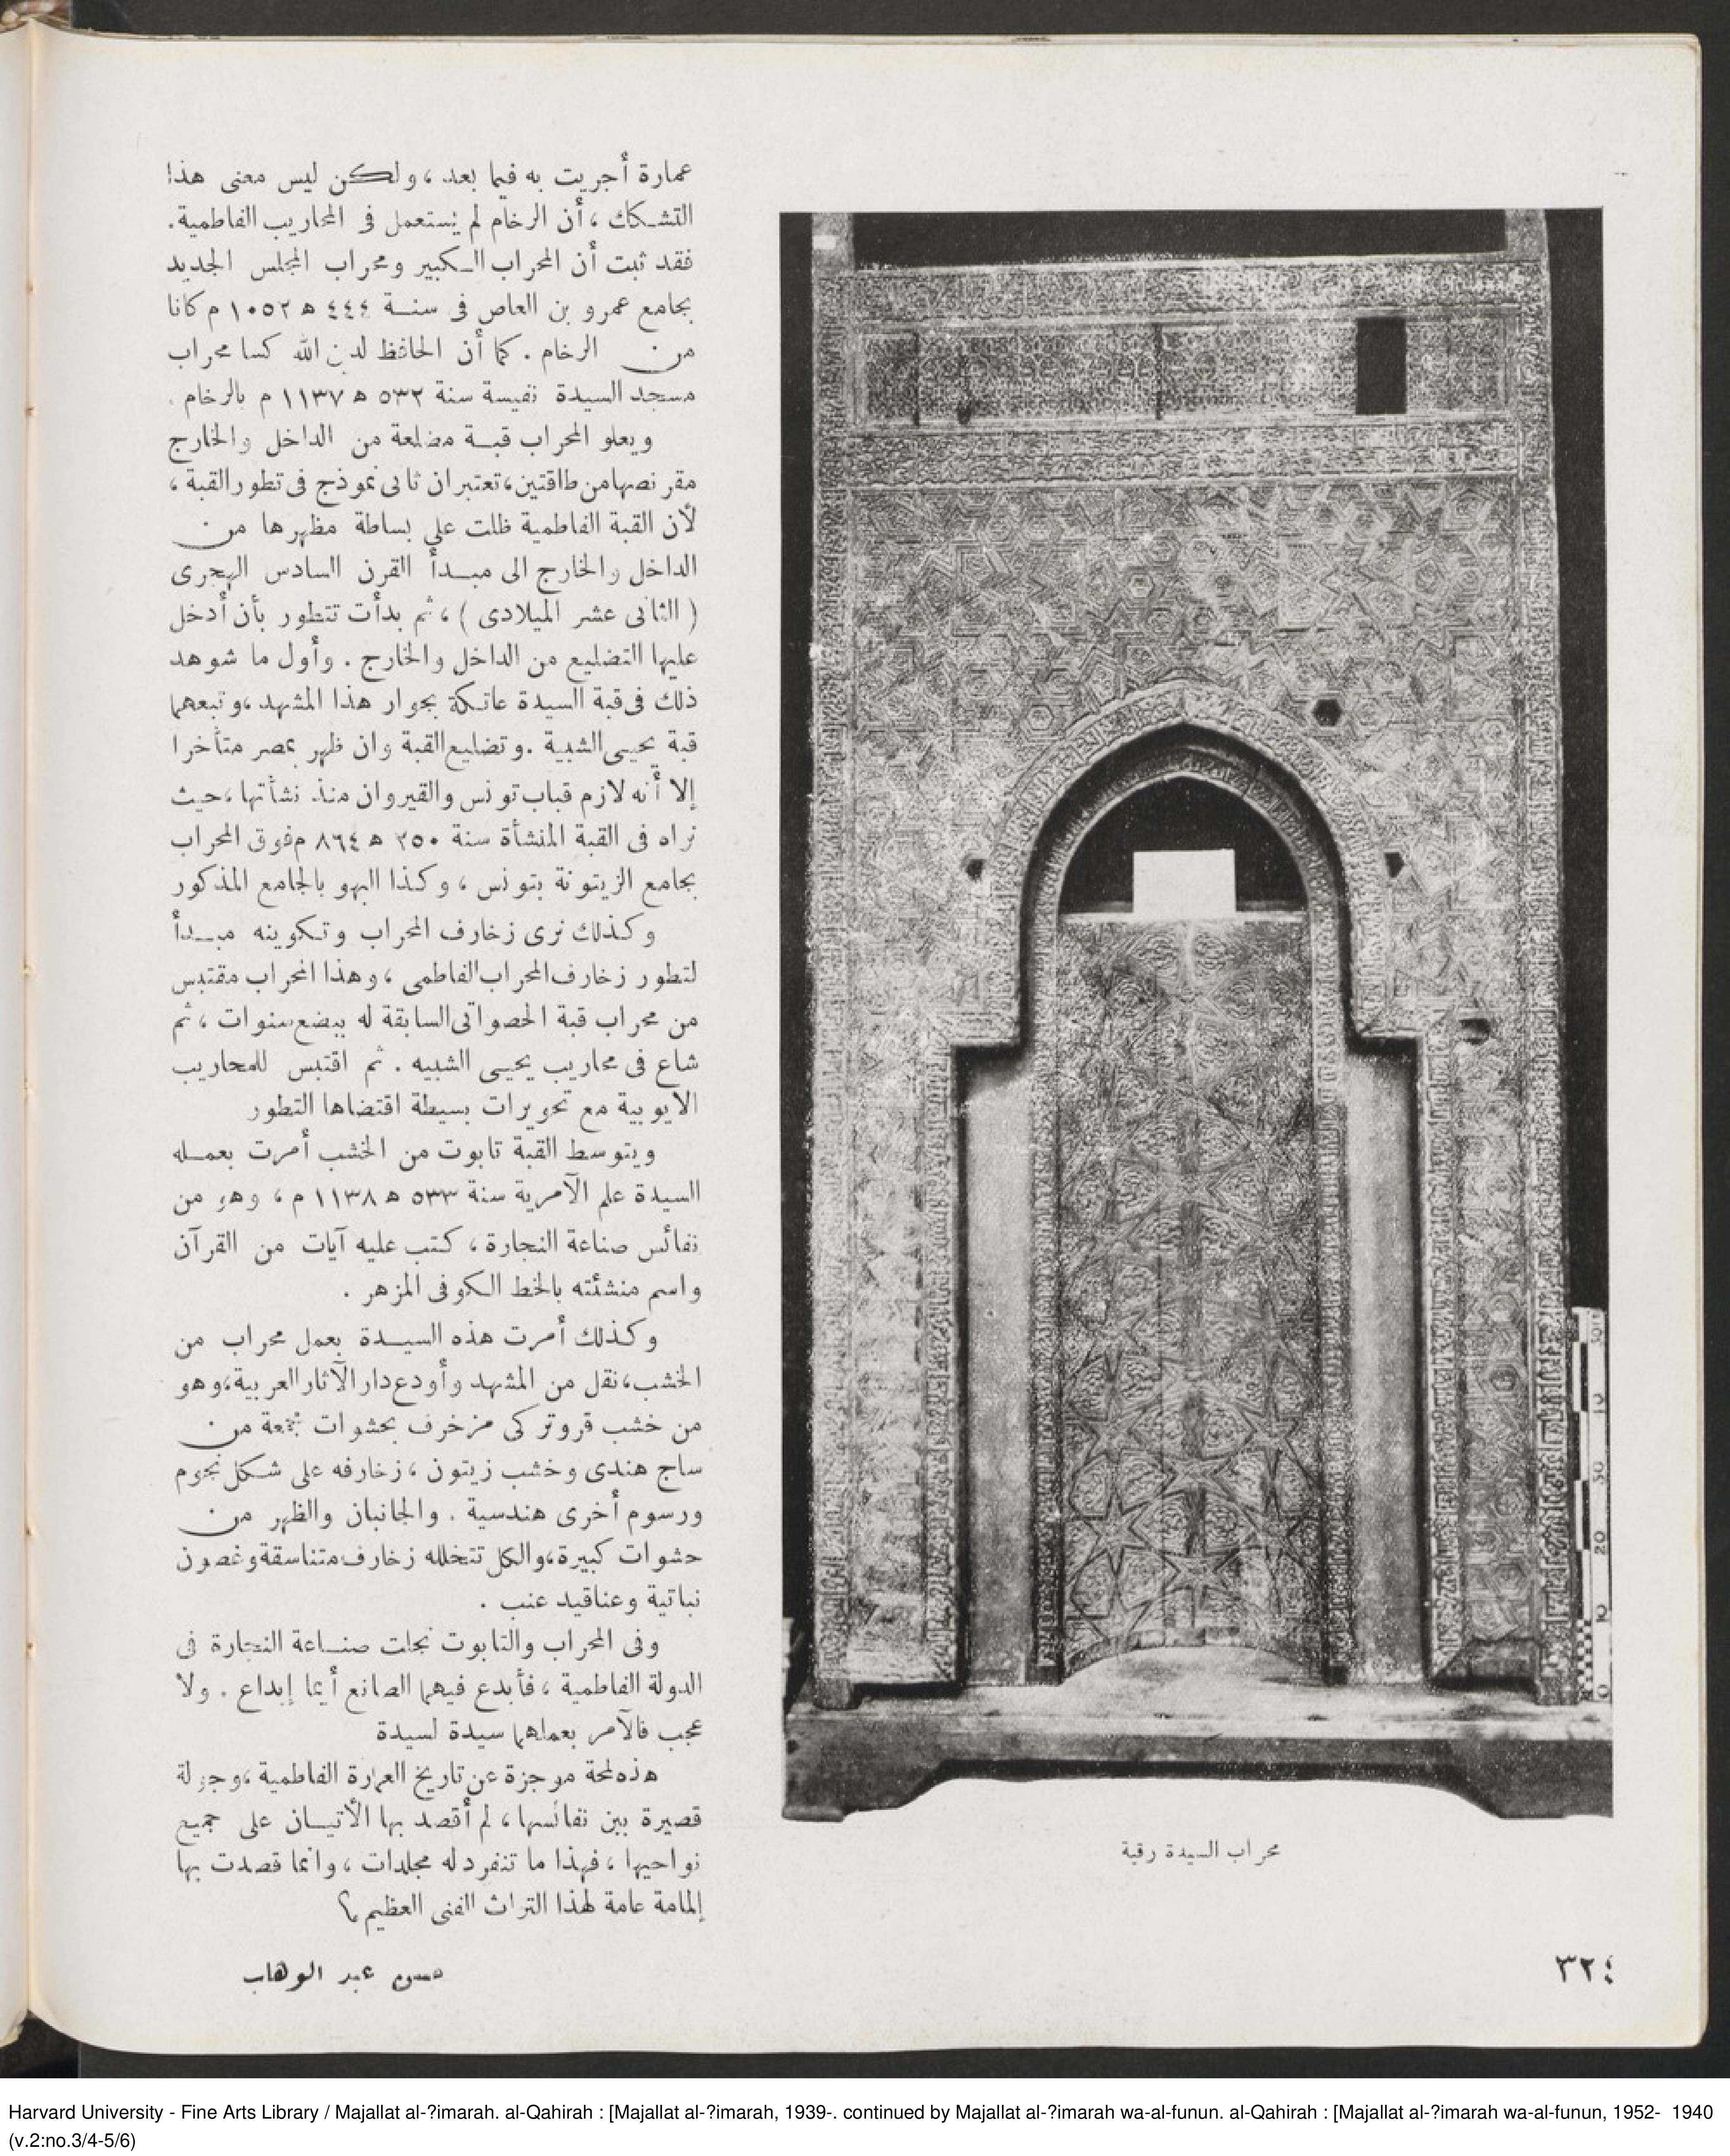 عمارة أجريت به فيما بعد ، ولكن ليس معنى هذا
التشكك ، أن الرخام لم يستعمل فى المحاريب الفاطمية .
فقد ثبت أن المحراب الكبير ومحراب المجلس الجديد
بجامع عمرو بن العاص فى سنة ٤٤٤ ه ١٠٥٢ م كانا
من الرخام . كما أن الحافظ لدين الله كسا محراب
مسجد السيدة نفيسة سنة ٥٣٢ ه ١١٣٧ م بالرخام .
ويعلو المحراب قبة مضلعة من الداخل والخارج
مقرنصها من طاقتين ، تعتبر ان ثانى نموذج فى تطور القبة ،
لأن القبة الفاطمية ظلت على بساطة مظهرها من
الداخل والخارج الى مبدأ القرن السادس الهجرى
( الثانى عشر الميلادى ) ، ثم بدأت تتطور بأن أدخل
عليها التضليع من الداخل والخارج . وأول ما شوهد
ذلك فى قبة السيدة عاتكة بجوار هذا المشهد ، وتبعهما
قبة يحيى الشبية . وتضليع القبة وان ظهر بمصر متأخرا
إلا أنه لازم قباب تونس والقيروان منذ نشأتها ، حيث
نراه فى القبة المنشأة سنة ٢٥٠ ه ٨٦٤ م فوق المحراب
بجامع الزيتونة بتونس ، وكذا البهو بالجامع المذكور
وكذلك نرى زخارف المحراب وتكوينه مبدأ
لتطور زخارف المحراب الفاطمى ، وهذا المحراب مقتبس
من محراب قبة الحصواتى السابقة له ببضع سنوات ، ثم
شاع فى محاريب يحيى الشبيه . ثم اقتبس للمحاريب
الايوبية مع تحويرات بسيطة اقتضاها التطور
ويتوسط القبة تابوت من الخشب أمرت بعمله
السيدة علم الآمرية سنة ٥٣٣ ه ١١٣٨ م ، وهو من
نفائس صناعة النجارة ، كتب عليه آيات من القرآن
واسم منشئته بالخط الكوفى المزهر .
وكذلك أمرت هذه السيدة بعمل محراب من
الخشب ، نقل من المشهد وأودع دار الآثار العربية ، وهو
من خشب قرو تركى مزخرف بحشوات مجمعة من
ساج هندى وخشب زيتون ، زخارفه على شكل نجوم
ورسوم أخرى هندسية . والجانبان والظهر من
حشوات كبيرة ، والكل تتخلله زخارف متناسقة وغصون
نباتية وعناقيد عنب .
وفى المحراب والتابوت تجلت صناعة النجارة فى
الدولة الفاطمية ، فأبدع فيهما الصانع أيما إبداع . ولا
عجب فالآمر بعملهما سيدة لسيدة
هذه لمحة موجزة عن تاريخ العمارة الفاطمية ، وجولة
قصيرة بين نفائسها ، لم أقصد بها الأتيان على جميع
نواحيها ، فهذا ما تنفرد له مجلدات ، وانما قصدت بها
إلمامة عامة لهذا التراث الفنى العظيم ؟
حسن عبد الوهاب
محراب السيدة رقية
50
30
20
10
0
٣٢٤
Harvard University - Fine Arts Library / Majallat al-?imarah. al-Qahirah : [Majallat al-?imarah, 1939-. continued by Majallat al-?imarah wa-al-funun. al-Qahirah : [Majallat al-?imarah wa-al-funun, 1952- 1940
(v.2:no.3/4-5/6)